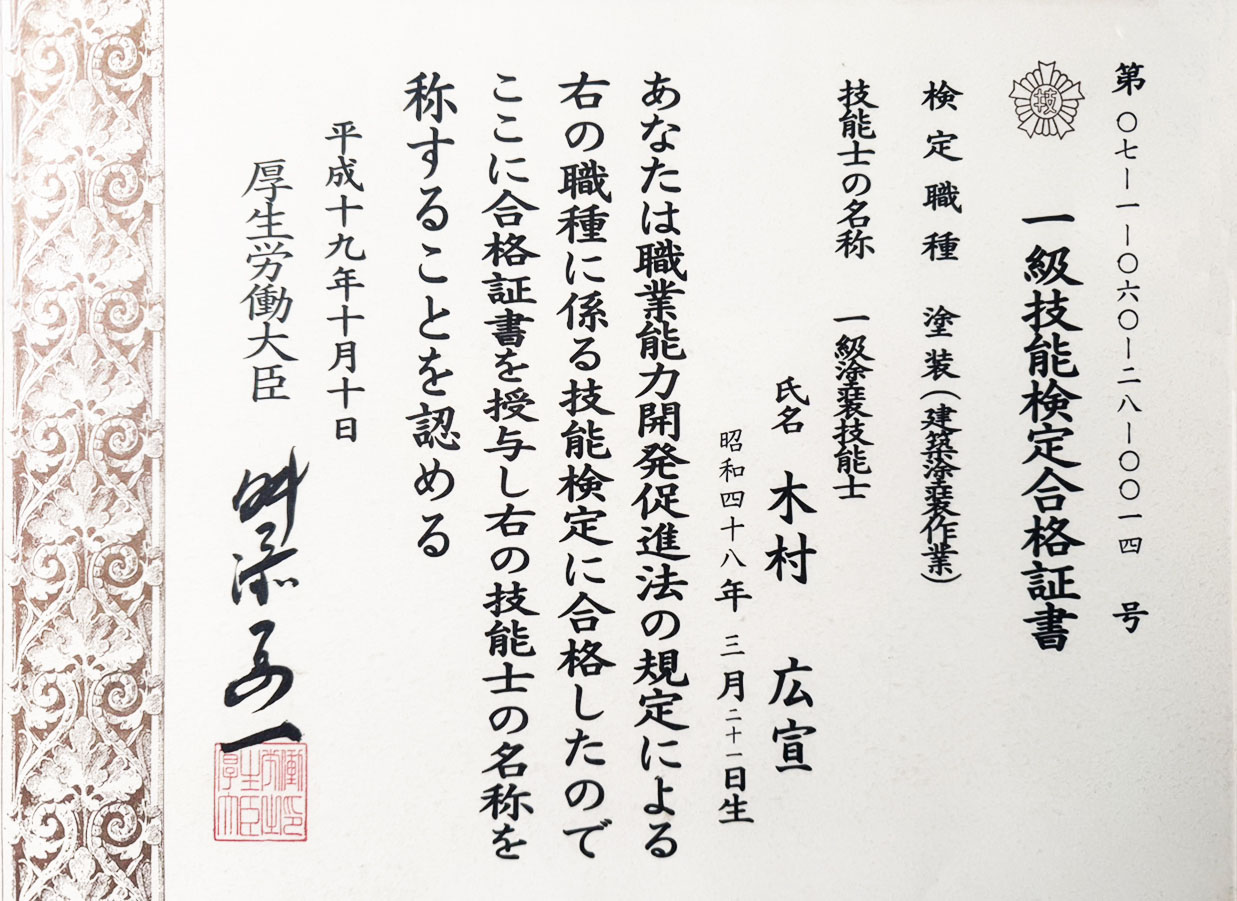 第〇七ー一ー〇六〇ー二八ー〇〇一四 号
技
一級技能検定合格証書
検定職種 塗装(建築塗装作業)
技能士の名称 一級塗装技能士
氏名 木村 広宣
昭和四十八年 三月二十一日生
あなたは職業能力開発促進法の規定による
右の職種に係る技能検定に合格したので
ここに合格証書を授与し右の技能士の名称を
称することを認める
平成十九年十月十日
厚生労働大臣 舛添要一